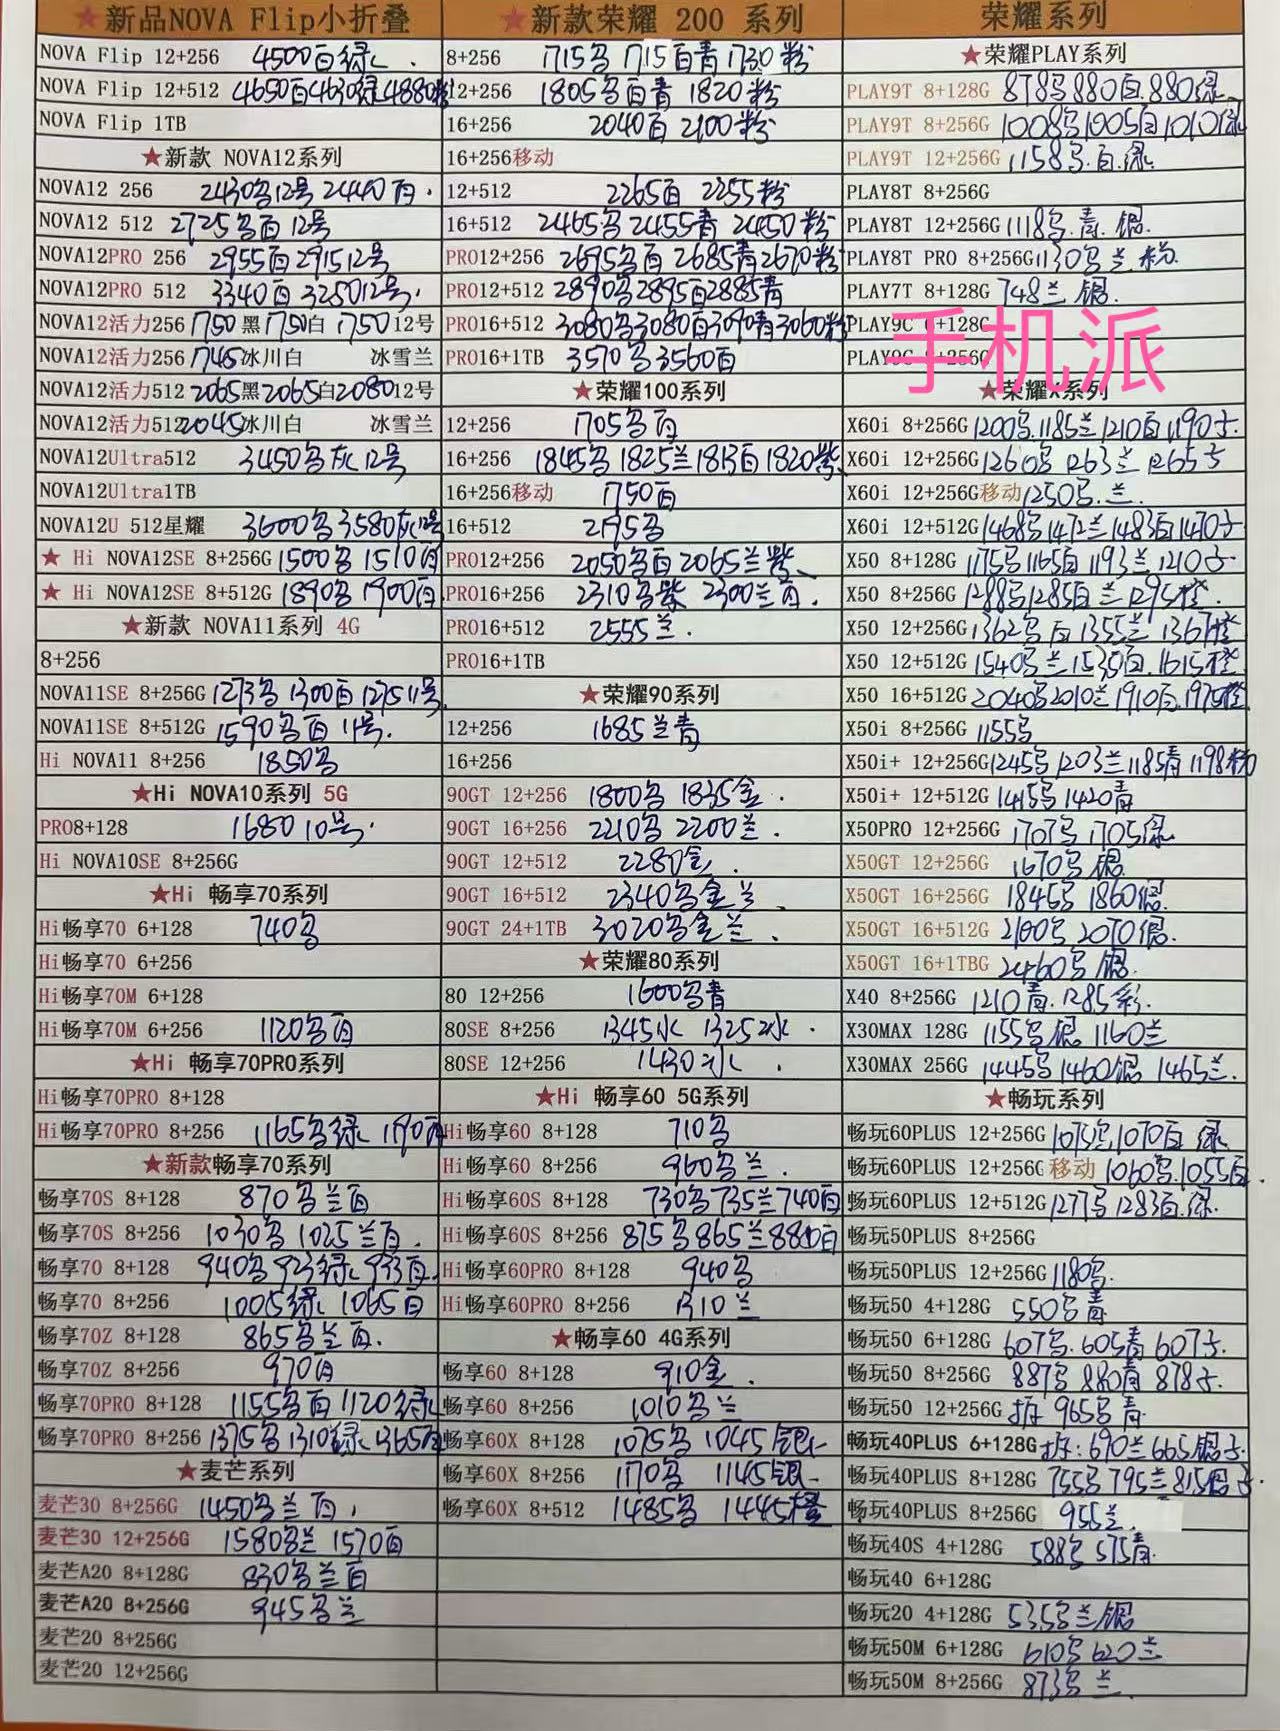 ★新品NOVA Flip小折叠
NOVA Flip 12+256 4500白绿
NOVA Flip 12+512 4650白4630绿4880粉
NOVA Flip 1TB
★新款 NOVA12系列
NOVA12 256 2430黑12号 2440白
NOVA12 512 2725黑白12号
NOVA12PRO 256 2955白2915 12号
NOVA12PRO 512 3340白 3250 12号
NOVA12活力256 1750黑1750白 1750 12号
NOVA12活力256 1745冰川白 冰雪兰
NOVA12活力512 2065黑2065白2080 12号
NOVA12活力512 2045冰川白 冰雪兰
NOVA12Ultra512 3450黑灰12号
NOVA12Ultra1TB
NOVA12U 512星耀 3600黑3580灰12号
★ Hi NOVA12SE 8+256G 1500黑 1510白
★ Hi NOVA12SE 8+512G 1890黑 1900白
★新款 NOVA11系列 4G
8+256
NOVA11SE 8+256G 1273黑 1300白 1275 11号
NOVA11SE 8+512G 1590黑白 11号
Hi NOVA11 8+256 1850黑
★Hi NOVA10系列 5G
PRO8+128 1680 10号
Hi NOVA10SE 8+256G
★Hi 畅享70系列
Hi畅享70 6+128 740黑
Hi畅享70 6+256
Hi畅享70M 6+128
Hi畅享70M 6+256 1120黑白
★Hi 畅享70PRO系列
Hi畅享70PRO 8+128
Hi畅享70PRO 8+256 1165黑绿 1190白
★新款畅享70系列
畅享70S 8+128 870黑兰白
畅享70S 8+256 1030黑 1025兰白
畅享70 8+128 940黑 923绿 933白
畅享70 8+256 1005绿 1065白
畅享70Z 8+128 865黑兰白
畅享70Z 8+256 970白
畅享70PRO 8+128 1155黑白 1120绿
畅享70PRO 8+256 1375黑1310绿 1365白
★麦芒系列
麦芒30 8+256G 1450黑兰白
麦芒30 12+256G 1580黑兰 1570白
麦芒A20 8+128G 830黑兰白
麦芒A20 8+256G 945黑兰
麦芒20 8+256G
麦芒20 12+256G
★新款荣耀 200 系列
8+256 1715黑 1715白青 1730粉
12+256 1805黑白青 1820粉
16+256 2040白 2100粉
16+256移动
12+512 2265白 2255粉
16+512 2465黑 2455青 2450粉
PRO12+256 2695黑白 2685青2670粉
PRO12+512 2890黑2895白2885青
PRO16+512 3080黑3080白3090青3060粉
PRO16+1TB 3570黑3560白
★荣耀100系列
12+256 1705黑白
16+256 1845黑 1825兰1813白 1820紫
16+256移动 1750白
16+512 2195黑
PRO12+256 2050黑白 2065兰紫
PRO16+256 2310黑紫 2300兰白
PRO16+512 2555兰
PRO16+1TB
★荣耀90系列
12+256 1685兰青
16+256
90GT 12+256 1800黑 1835金
90GT 16+256 2210黑 2200兰
90GT 12+512 2280金
90GT 16+512 2340黑金兰
90GT 24+1TB 3020黑金兰
★荣耀80系列
80 12+256 1600黑青
80SE 8+256 1345水 1325冰
80SE 12+256 1430冰
★Hi 畅享60 5G系列
Hi畅享60 8+128 710黑
Hi畅享60 8+256 960黑兰
Hi畅享60S 8+128 730黑735兰740白
Hi畅享60S 8+256 875黑865兰880白
Hi畅享60PRO 8+128 940黑
Hi畅享60PRO 8+256 1310兰
★畅享60 4G系列
畅享60 8+128 910金
畅享60 8+256 1010黑兰
畅享60X 8+128 1075黑 1045银
畅享60X 8+256 1170黑 1145银
畅享60X 8+512 1485黑 1445橙
荣耀系列
★荣耀PLAY系列
PLAY9T 8+128G 878黑880白880绿
PLAY9T 8+256G 1008黑1005白1010绿
PLAY9T 12+256G 1158黑.白.绿
PLAY8T 8+256G
PLAY8T 12+256G 1118黑.青.银
PLAY8T PRO 8+256G 1130黑兰粉
PLAY7T 8+128G 748兰 银
PLAY9C 6+128G
PLAY9C 8+256G
手机派
★荣耀X系列
X60i 8+256G 1200黑.1185兰1210白.1190子
X60i 12+256G 1260黑 1263兰 1265子
X60i 12+256G移动 1250黑.兰
X60i 12+512G 1468黑1472兰1483白1470子
X50 8+128G 1175黑1165白 1193兰.1210子
X50 8+256G 1288黑1285白兰1295橙
X50 12+256G 1362黑白 1355兰 1367橙
X50 12+512G 1540黑兰1535白.1615橙
X50 16+512G 2040黑2010兰1910白.1975橙
X50i 8+256G 1155黑
X50i+ 12+256G 1245黑 1203兰1185青1198粉
X50i+ 12+512G 1415黑1420青
X50PRO 12+256G 1707黑 1705绿
X50GT 12+256G 1670黑 银
X50GT 16+256G 1845黑 1860银
X50GT 16+512G 2100黑 2070银
X50GT 16+1TBG 2460黑银
X40 8+256G 1210青.1285彩
X30MAX 128G 1155黑银 1160兰
X30MAX 256G 1445黑1460银 1465兰
★畅玩系列
畅玩60PLUS 12+256G 1075黑.1070白 绿
畅玩60PLUS 12+256G 移动 1060黑.1055白
畅玩60PLUS 12+512G 1277黑1283白.绿
畅玩50PLUS 8+256G
畅玩50PLUS 12+256G 1180黑
畅玩50 4+128G 550黑青
畅玩50 6+128G 607黑.605青 607子
畅玩50 8+256G 887黑 880青 878子
畅玩50 12+256G 拆 965黑青
畅玩40PLUS 6+128G 拆:690兰665银子
畅玩40PLUS 8+128G 755黑 795兰815银子
畅玩40PLUS 8+256G 955兰
畅玩40S 4+128G 588黑 575青
畅玩40 6+128G
畅玩20 4+128G 535黑兰银
畅玩50M 6+128G 610黑 620兰
畅玩50M 8+256G 873黑 兰